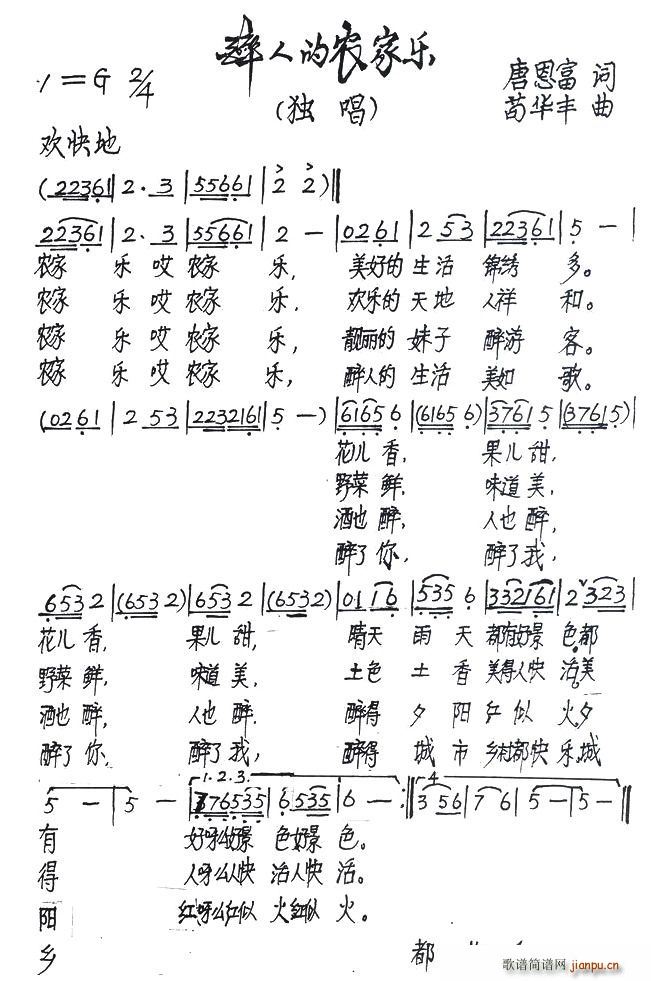 醉人的农家乐
(独 唱)
1=G 2/4
唐恩富 词
苟华丰 曲
欢快地
(22361|2.3|55661|2 2)‖
22361|2.3|55661|2 -|0261|2 53|22361|5 -|
农家 乐 哎 农家 乐, 美好的 生活 锦绣 多。
农家 乐 哎 农家 乐, 欢乐的 天地 人祥 和。
农家 乐 哎 农家 乐, 靓丽的 妹子 醉游 客。
农家 乐 哎 农家 乐, 醉人的 生活 美如 歌。
(0261|2 53|2232161|5 -)|6165 6|(6165 6)|3761 5|(3761 5)|
花儿 香, 果儿 甜,
野菜 鲜, 味道 美,
酒也 醉, 人也 醉,
醉了 你, 醉了 我,
653 2|(653 2)|653 2|(653 2)|011 6|535 6|332161|2 323|
花儿 香, 果儿 甜, 晴天 雨 天 都有好景 色都
野菜 鲜, 味道 美, 土色 土 香 美得人快 活美
酒也 醉, 人也 醉. 醉得 夕 阳 红 似 火夕
醉了 你, 醉了 我, 醉得 城 市 乡村都快 乐,城
5 -|5 -|1.2.3. 376535|6 535|6 -:‖4 3 56|7 6|5 -|5 -‖
有 好呀么好景 色好景 色。
得 人呀么人快 活人快 活。
阳 红呀么红似 火红似 火。
乡 都
歌谱简谱网
jianpu.cn